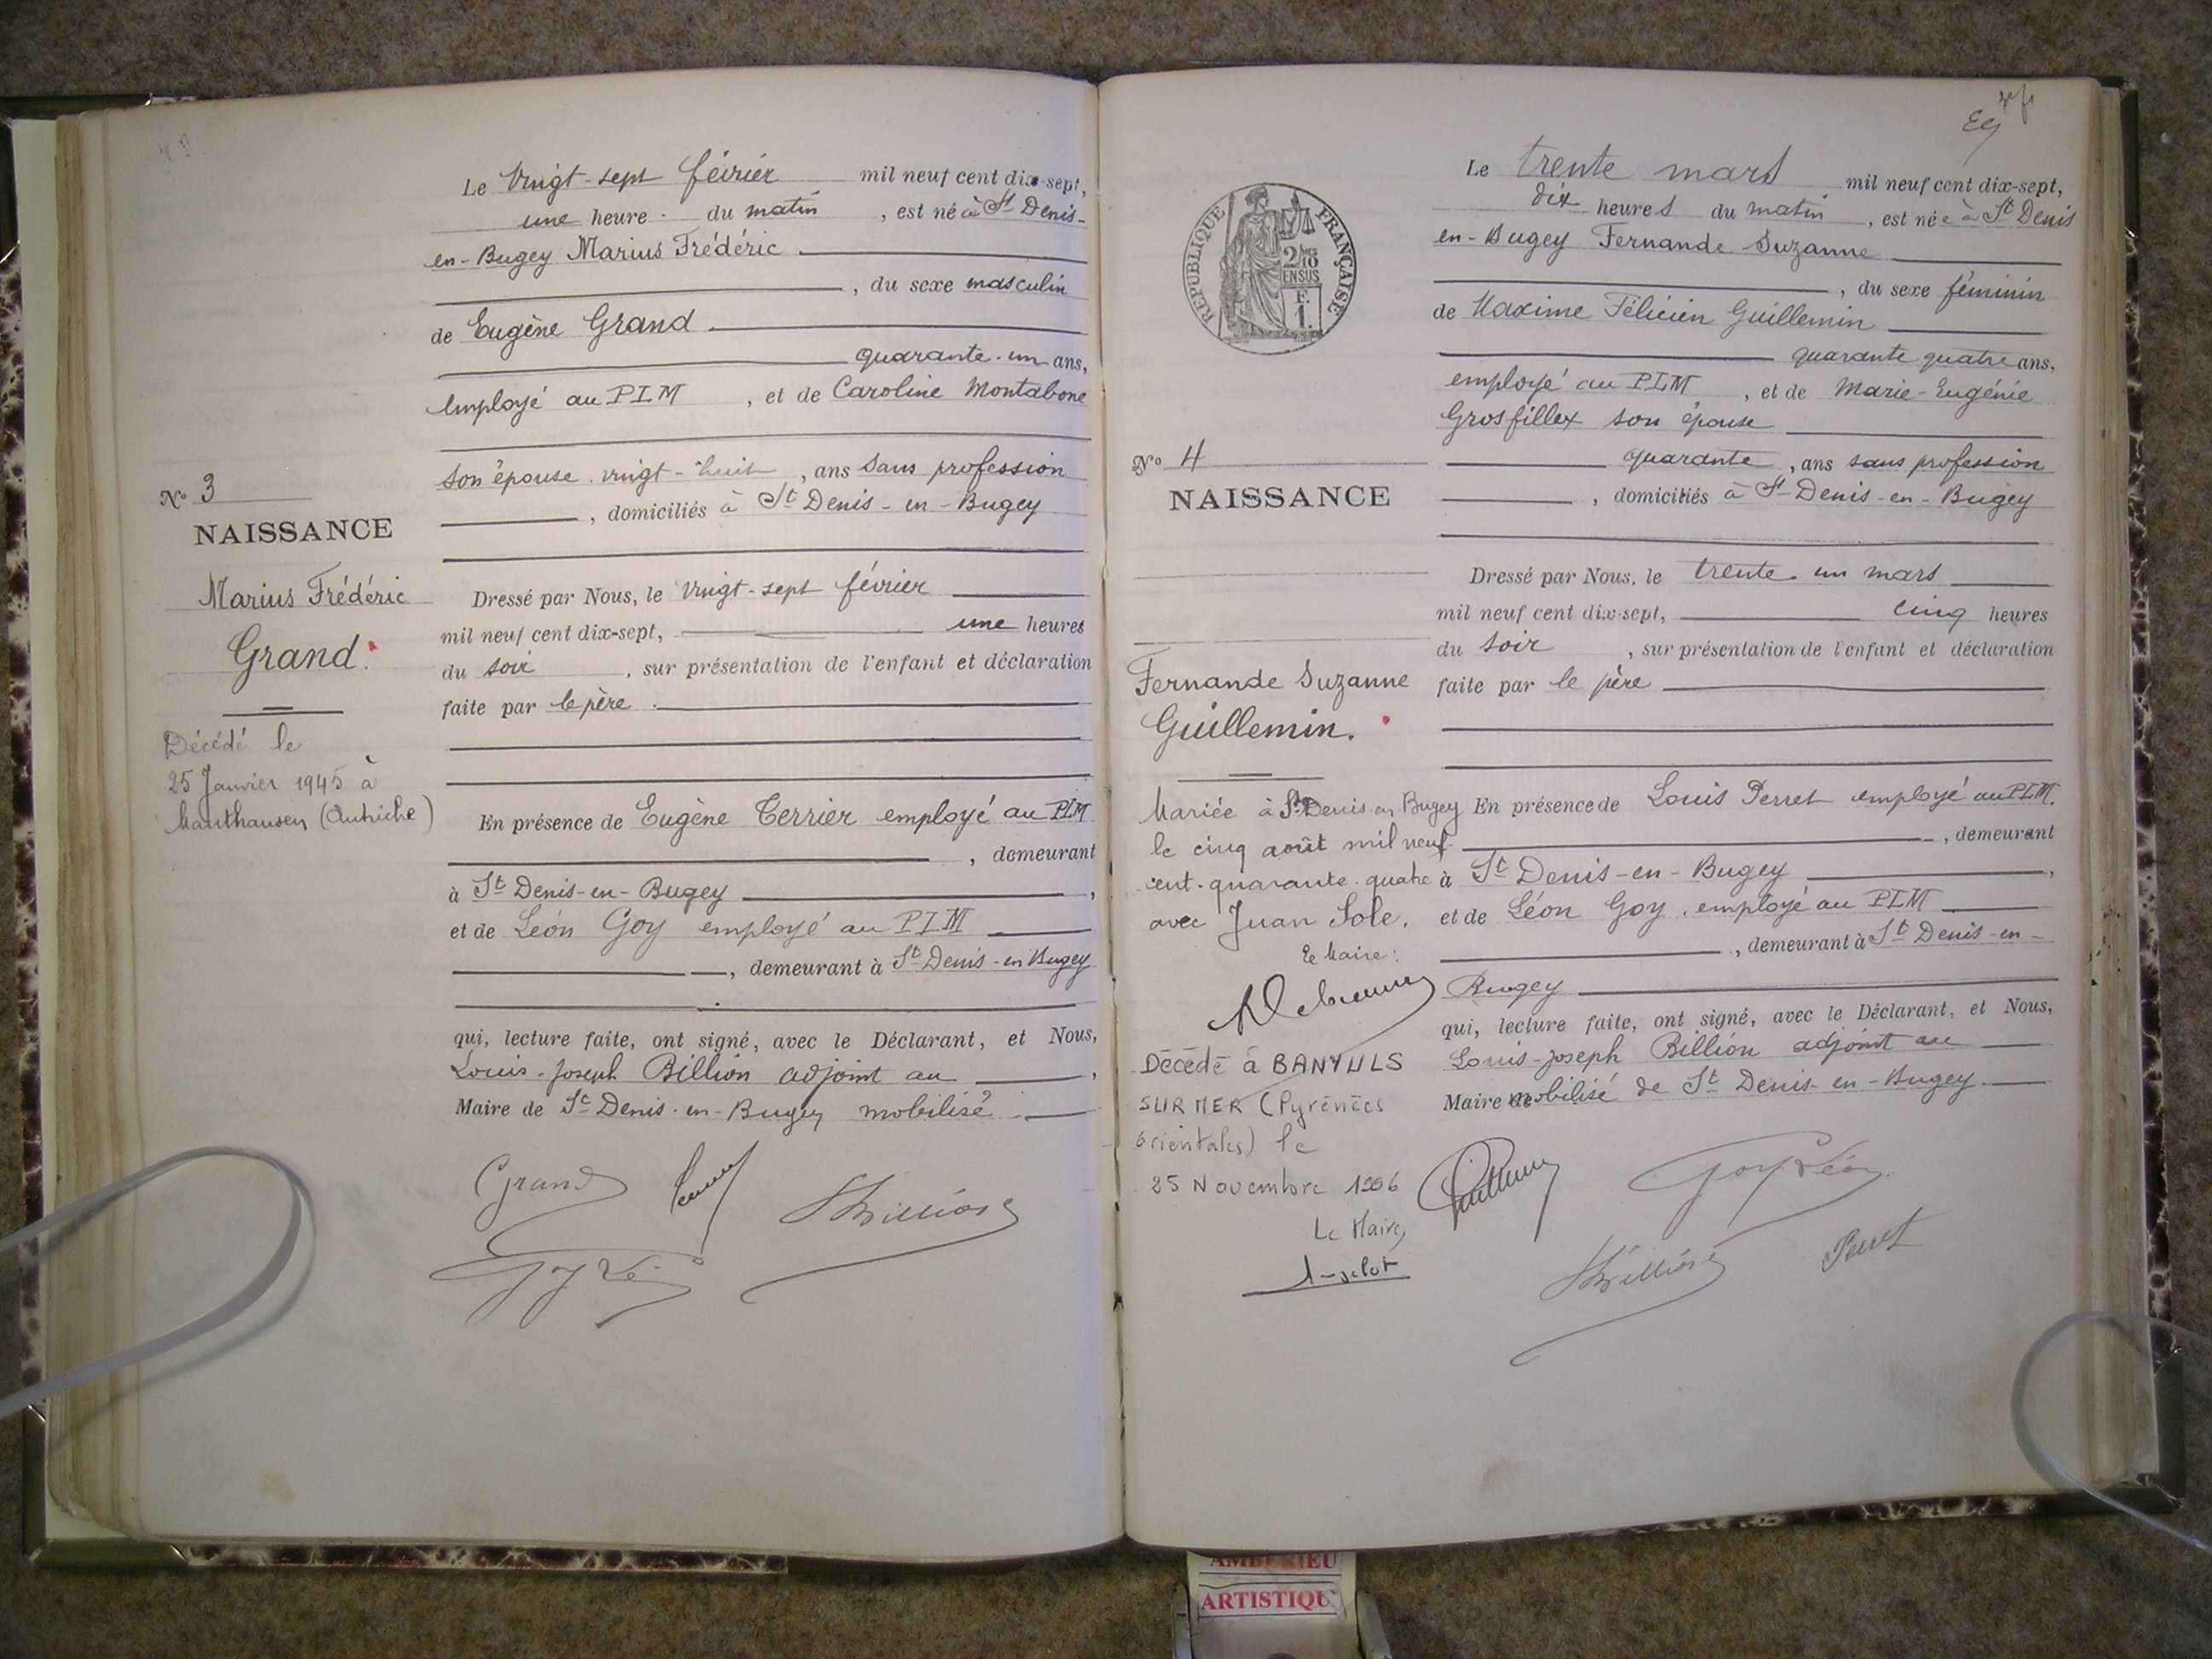 Le vingt-sept février mil neuf cent dix-sept,
une heure du matin, est né à St Denis-
en-Bugey Marius Frédéric
, du sexe masculin
de Eugène Grand
quarante-un ans,
employé au PLM, et de Caroline Montabone
son épouse vingt-huit, ans sans profession
, domiciliés à St Denis-en-Bugey
No 3
NAISSANCE
Marius Frédéric
Grand.
Décédé le
25 Janvier 1945 à
Mauthausen (Autriche)
Dressé par Nous, le vingt-sept février
mil neuf cent dix-sept, une heures
du soir, sur présentation de l'enfant et déclaration
faite par le père
En présence de Eugène Terrier employé au PLM
, demeurant
à St Denis-en-Bugey,
et de Léon Goy employé au PLM
, demeurant à St Denis-en Bugey
qui, lecture faite, ont signé, avec le Déclarant, et Nous,
Louis-Joseph Billion adjoint au,
Maire de St Denis-en-Bugey mobilisé
Grand
Billion
Goy
Le trente mars mil neuf cent dix-sept,
dix heures du matin, est née à St Denis
en-Bugey Fernande Suzanne
, du sexe féminin
de Maxime Félicien Guillemin
quarante quatre ans,
employé au PLM, et de Marie-Eugénie
Grosfillex son épouse
quarante, ans sans profession
, domiciliés à St Denis-en-Bugey
REPUBLIQUE FRANÇAISE
2/10
EN SUS
F.
1.
No 4
NAISSANCE
Fernande Suzanne
Guillemin.
Mariée à St Denis en Bugey
le cinq août mil neuf
cent-quarante-quatre
avec Juan Sole.
Le Maire:
Décédé à BANYULS
SUR MER (Pyrénées
Orientales) le
25 Novembre 1996
Le Maire,
Dressé par Nous, le trente-un mars
mil neuf cent dix-sept, cinq heures
du soir, sur présentation de l'enfant et déclaration
faite par le père
En présence de Louis Perret employé au PLM,
, demeurant
à St Denis-en-Bugey,
et de Léon Goy, employé au PLM
, demeurant à St Denis-en-
Bugey
qui, lecture faite, ont signé, avec le Déclarant, et Nous,
Louis-Joseph Billion adjoint au
Maire mobilisé de St Denis-en-Bugey.
Guillemin
Goy Léon
Billion
Perret
AMBERIEU
ARTISTIQU